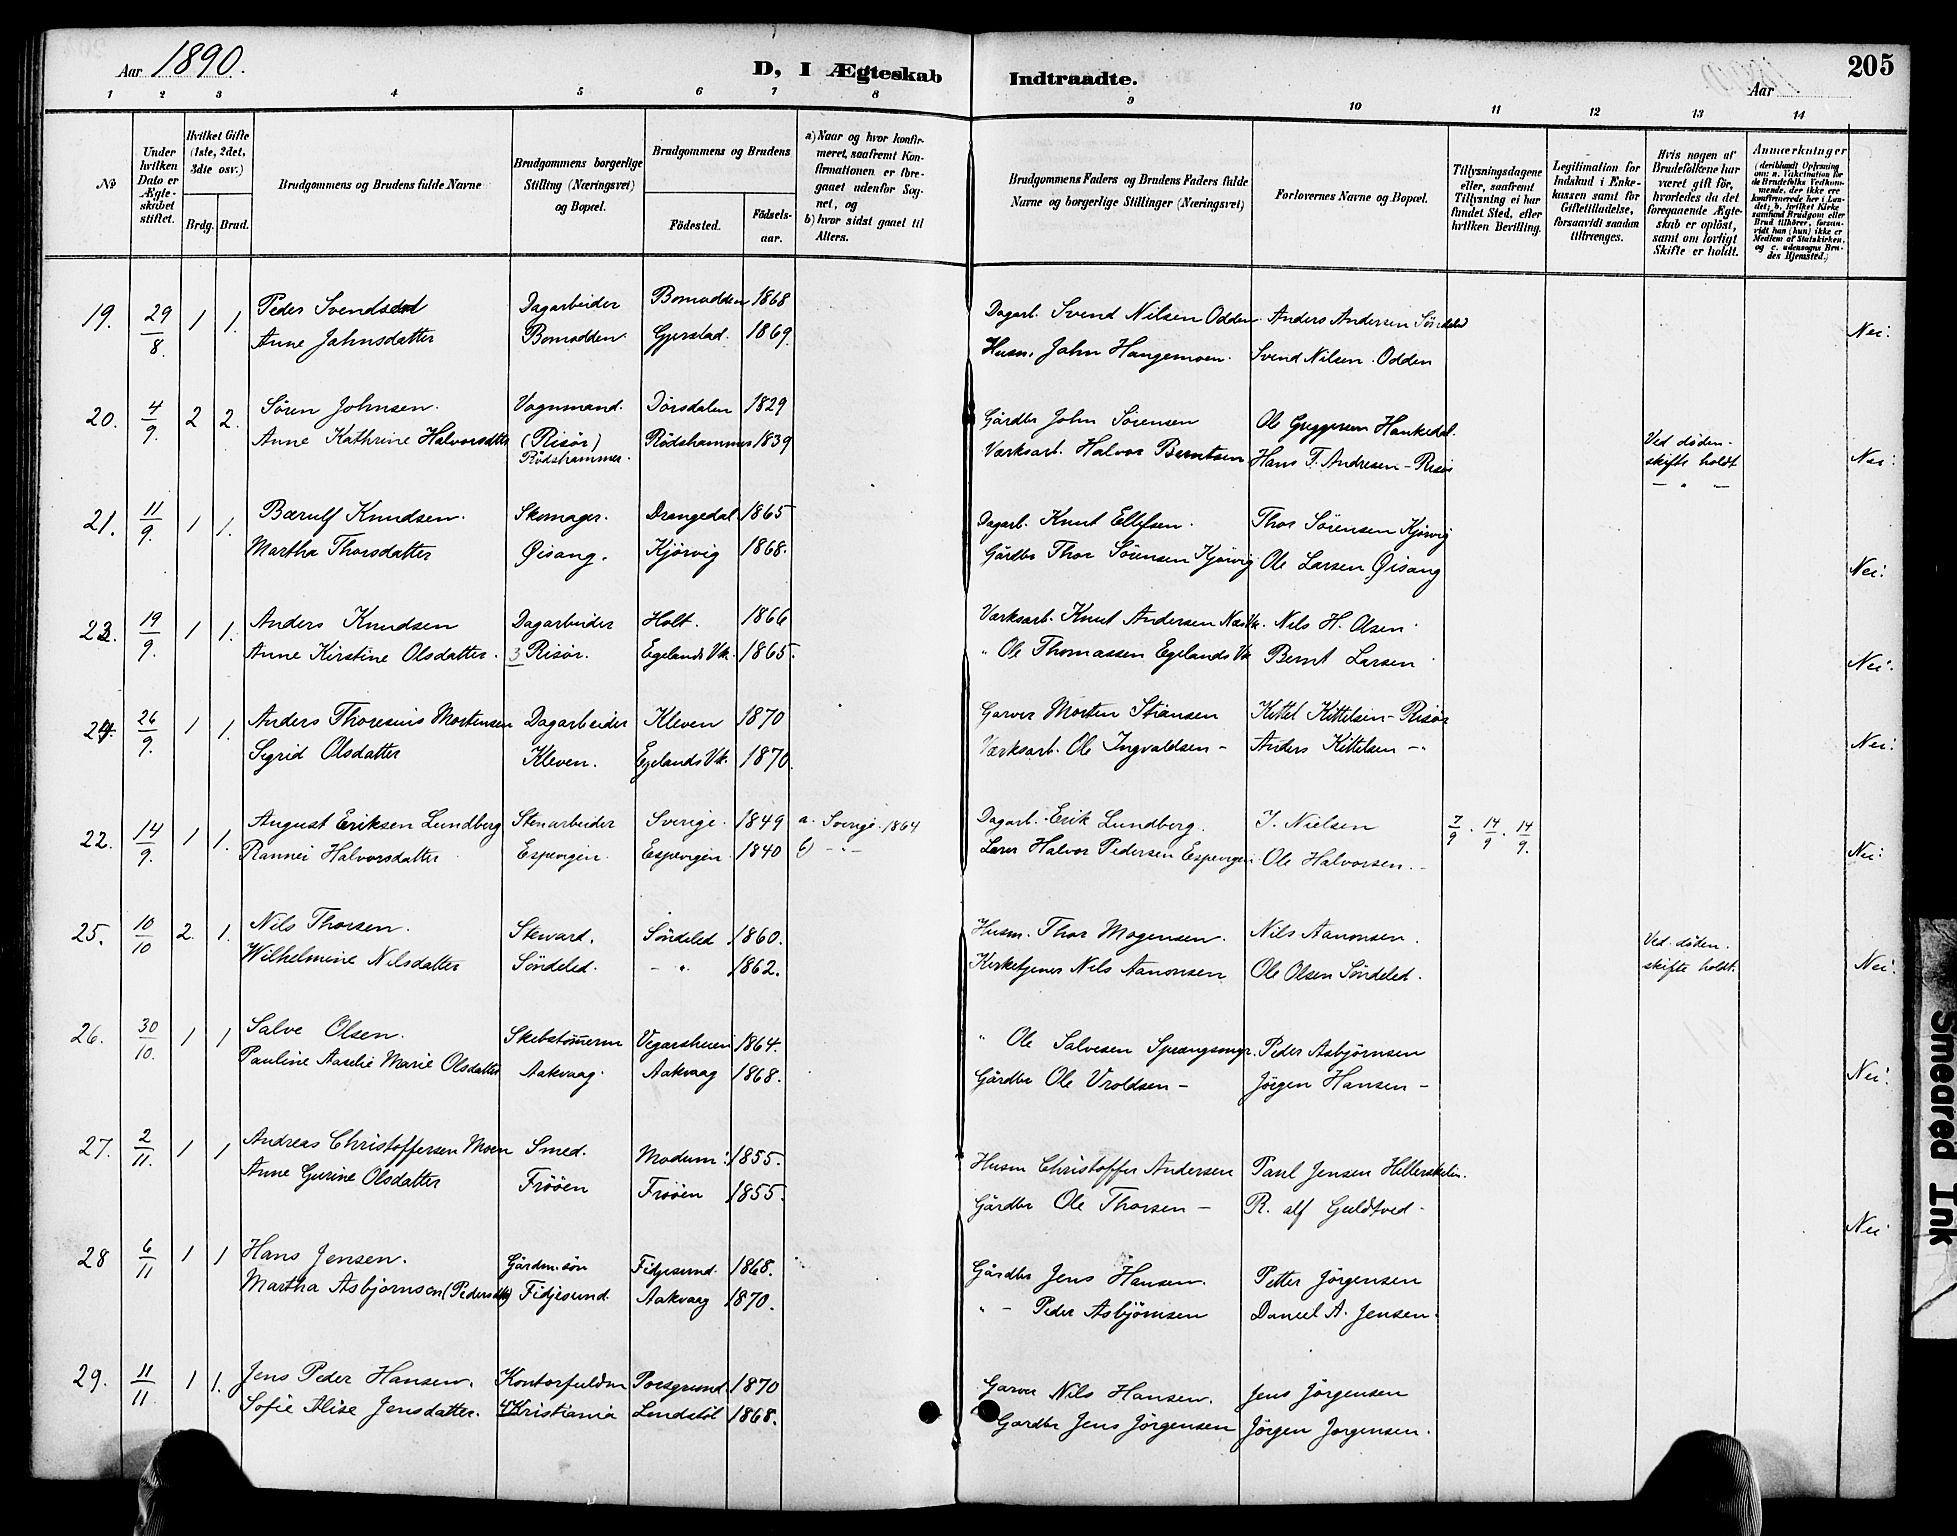 Aar 1890.
D, I Ægteskab Indtraadte.
Aar
205
1 2 3 4 5 6 7 8 9 10 11 12 13 14
No
Under hvilken Dato er Ægteskabet stiftet.
Hvilket Gifte (1ste, 2det, 3die osv.)
Brdg. Brud.
Brudgommens og Brudens fulde Navne
Brudgommens borgerlige Stilling (Næringsvei) og Bopæl.
Brudgommens og Brudens
Födested.
Födselsaar.
a) Naar og hvor konfirmeret, saafremt Konfirmationen er foregaaet udenfor Sognet, og
b) hvor sidst gaaet til Alters.
Brudgommens Faders og Brudens Faders fulde Navne og borgerlige Stillinger (Næringsvei)
Forlovernes Navne og Bopæl.
Tillysningsdagene eller, saafremt Tillysning ei har fundet Sted, efter hvilken Bevilling.
Legitimation for Indskud i Enkekassen samt for Giftetilladelse, forsaavidt saadan tiltrænges.
Hvis nogen af Brudefolkene har været gift før, hvorledes da det foregaaende Ægteskab er oplöst, samt om lovligt Skifte er holdt.
Anmærkninger
(deriblandt Oplysning om: a. Vakcination for de Brudefolks Vedkommende, der ikke ere konfirmerede her i Landet; b. hvilket Kirkesamfund Brudgom eller Brud tilhörer, forsavidt han (hun) ikke er Medlem af Statskirken, og c. udensogns Brudes Hjemsted.)
19. 29/8. 1 1. Peder Svendsen Dagarbeider Bomodden 1868 Dagarb. Svend Nilsen Odden Anders Andersen Söndeled Nei.
Anne Jahnsdatter Bomodden Gjerstad. 1869. Husm. John Hangemoen. Svend Nilsen Odden
20. 4/9. 2 2. Søren Johnsen. Vognmand. Dørsdalen 1829 Gårdbr John Sørensen Ole Greggersen Hankedal. Ved døden- Nei.
Anne Kathrine Halvorsdtr (Risør) Rødshammer 1839 Værksarb. Halvor Berntsen Hans F. Andresen - Risør skifte holdt
Rødshammer. — " —
21. 11/9. 1 1. Bærulf Knudsen. Skomager. Drangedal 1865 Dagarb. Knut Ellefsen. Thor Sörensen Kjörvig
Martha Thorsdatter Øisang. Kjörvig 1868. Gårdbr Thor Sörensen Kjörvig Ole Larsen Øisang Nei.
23. 19/9. 1 1. Anders Knudsen Dagarbeider Holt. 1866 Værksarb. Knut Andersen Næs Vk. Nils H. Olsen
Anne Kirstine Olsdatter. 3 Risør. Egelands Vk. 1865. " Ole Thomassen Egelands Vk Bernt Larsen Nei.
24. 26/9. 1 1. Anders Thoresius Mortensen Dagarbeider Kleven 1870 Garver Morten Stiansen Kittel Kittelsen - Risør
Sigrid Olsdatter Kleven. Egelands Vk. 1870. Værksarb. Ole Ingvaldsen - Anders Kittelsen -" Nei.
22. 14/9. 1 1. August Eriksen Lundberg Stenarbeider Sverige 1849 a. Sverige 1864 Dagarb. Erik Lundberg. J. Nielsen 7/9 . 14/9 . 14/9.
Rannei Halvorsdatter Espevigen. Espevigen 1840 b) — " — Halvor Pedersen Espevigen Ole Halvorsen. Nei.
25. 10/10 2. 1. Nils Thorsen. Steward. Söndeled 1860. Husm. Thor Mogensen. Nils Aanonsen. Ved døden. Nei.
Wilhelmine Nilsdatter Söndeled. — " 1862. Kirketjener Nils Aanonsen Ole Olsen Söndeled. skifte holdt.
26. 30/10. 1 1 Salve Olsen. Skibstømmerm Vegarsheien 1864. " Ole Salvesen Peder Asbjörnsen
Pauline Aaselie Marie Olsdatter Aakvaag. Aakvaag 1868. Gårdbr Ole Vroldsen - Jörgen Hansen - Nei.
27. 2/11. 1 1 Andreas Christoffersen Moen Smed. Modum. 1855. Husm Christoffer Andersen Paul Jensen
Anne Gurine Olsdatter Frööen Frööen 1855. Gårdbr Ole Thorsen - R. alf Guldtved - Nei
28 6/11 1 1 Hans Jensen. Gårdmsøn Fidjesund. 1868. Gårdbr Jens Hansen. Petter Jörgensen
Martha Asbjörnsen (Pedersdtr) Fidjesund. Aakvaag 1870. " - Peder Asbjörnsen Daniel A. Jensen.
29. 11/11. 1 1. Jens Peder Hansen. Kontorfuldm Porsgrund 1870 Garver Nils Hansen. Jens Jörgensen
Sofie Alise Jensdatter. 4 Kristiania Lindstöl 1868. Gårdbr Jens Jörgensen Jörgen Jorgensen.
Smeared Ink